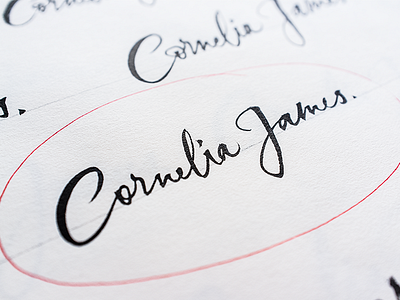 Cornelia James
Cornelia James.